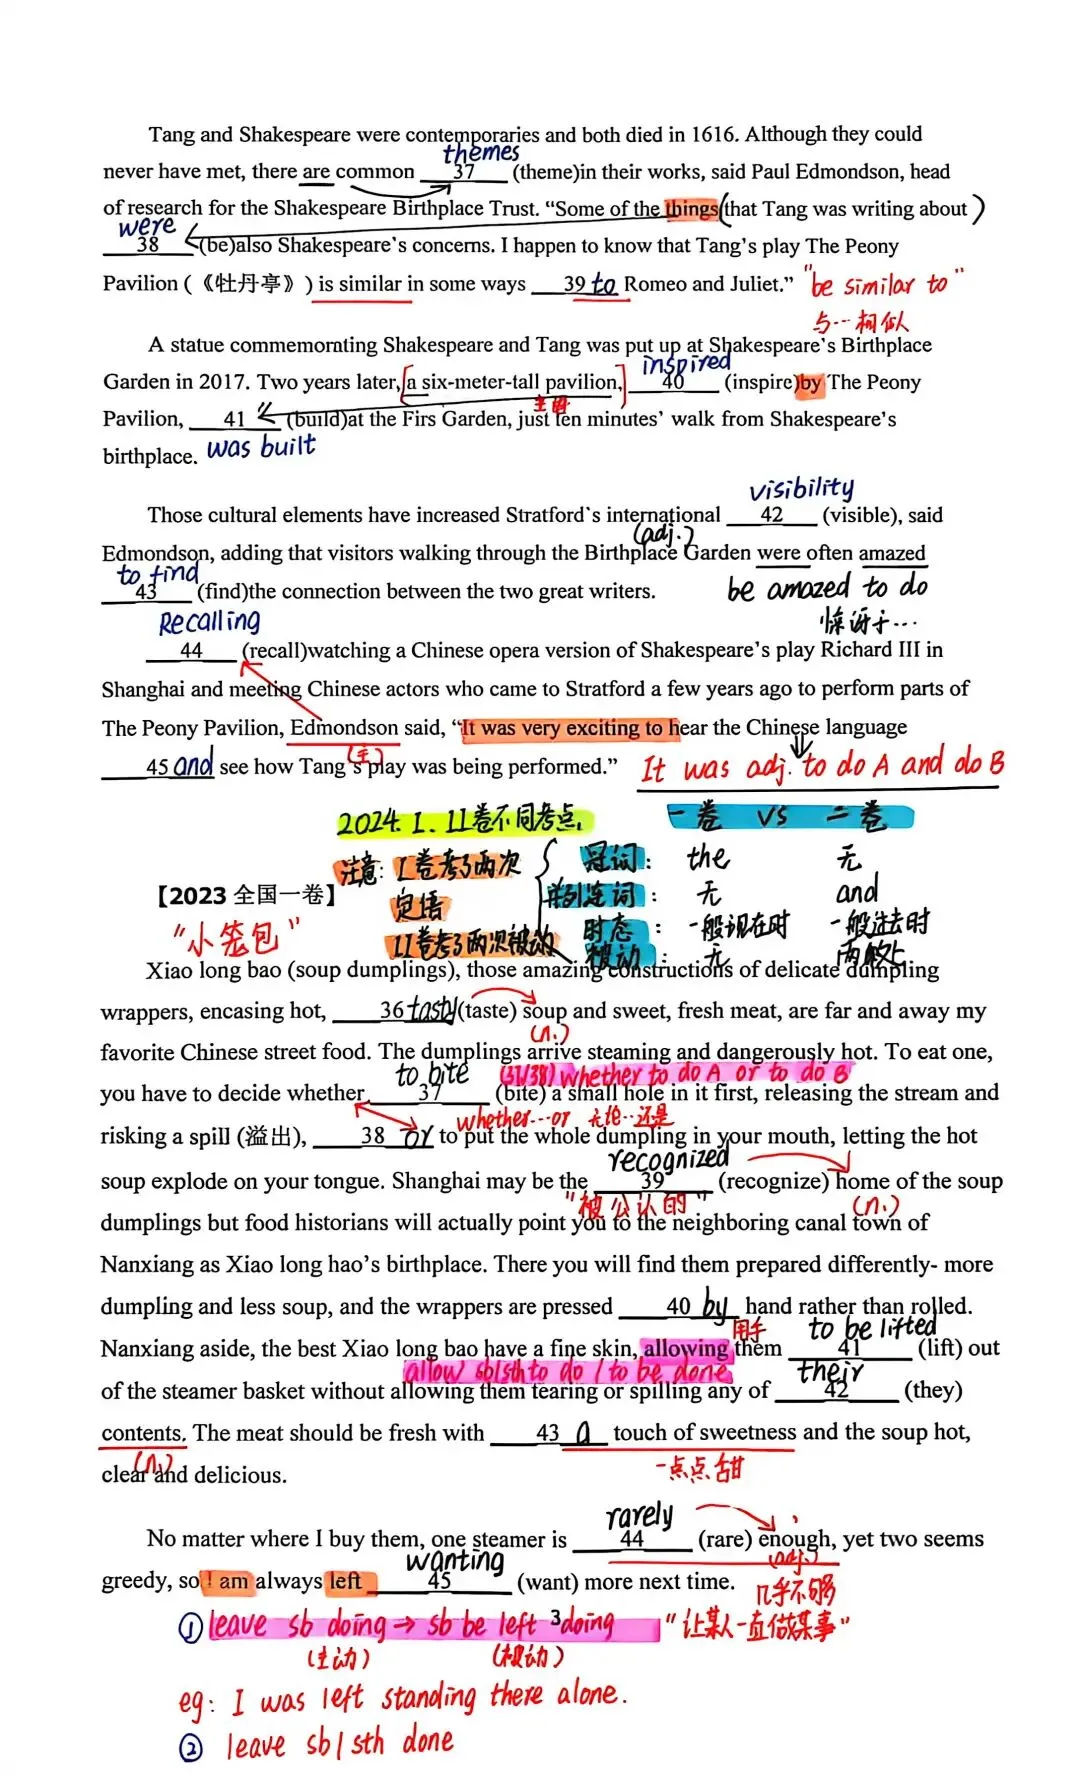 Tang and Shakespeare were contemporaries and both died in 1616. Although they could
themes
never have met, there are common 37 (theme)in their works, said Paul Edmondson, head
of research for the Shakespeare Birthplace Trust. “Some of the things (that Tang was writing about)
were
38 (be)also Shakespeare’s concerns. I happen to know that Tang’s play The Peony
Pavilion (《牡丹亭》) is similar in some ways 39 to Romeo and Juliet.” "be similar to"
与…相似
A statue commemornting Shakespeare and Tang was put up at Shakespeare’s Birthplace
inspired
Garden in 2017. Two years later, [a six-meter-tall pavilion,] 40 (inspire)by The Peony
主语
Pavilion, 41 (build)at the Firs Garden, just ten minutes’ walk from Shakespeare’s
birthplace. was built
visibility
Those cultural elements have increased Stratford’s international 42 (visible), said
(adj.)
Edmondson, adding that visitors walking through the Birthplace Garden were often amazed
to find
43 (find)the connection between the two great writers. be amazed to do
惊讶于…
Recalling
44 (recall)watching a Chinese opera version of Shakespeare’s play Richard III in
Shanghai and meeting Chinese actors who came to Stratford a few years ago to perform parts of
The Peony Pavilion, Edmondson said, “It was very exciting to hear the Chinese language
(主)
45 and see how Tang’s play was being performed.” It was adj. to do A and do B
2024. I. II卷不同考点. 一卷 VS 二卷
注意: I卷考了两次 冠词: the 无
【2023 全国一卷】 定语 并列连词: 无 and
"小笼包" II卷考了两次被动 时态: 一般现在时 一般过去时
被动: 无 两次
Xiao long bao (soup dumplings), those amazing constructions of delicate dumpling
wrappers, encasing hot, 36 tasty (taste) soup and sweet, fresh meat, are far and away my
(n.)
favorite Chinese street food. The dumplings arrive steaming and dangerously hot. To eat one,
to bite (37/38) whether to do A or to do B
you have to decide whether 37 (bite) a small hole in it first, releasing the stream and
whether…or 无论…还是
risking a spill (溢出), 38 or to put the whole dumpling in your mouth, letting the hot
recognized
soup explode on your tongue. Shanghai may be the 39 (recognize) home of the soup
"被公认的" (n.)
dumplings but food historians will actually point you to the neighboring canal town of
Nanxiang as Xiao long hao’s birthplace. There you will find them prepared differently- more
dumpling and less soup, and the wrappers are pressed 40 by hand rather than rolled.
用手 to be lifted
Nanxiang aside, the best Xiao long bao have a fine skin, allowing them 41 (lift) out
allow sb/sth to do / to be done their
of the steamer basket without allowing them tearing or spilling any of 42 (they)
contents. The meat should be fresh with 43 a touch of sweetness and the soup hot,
(n.) 一点点甜
clear and delicious.
rarely
No matter where I buy them, one steamer is 44 (rare) enough, yet two seems
wanting (adj.)
greedy, so I am always left 45 (want) more next time. 几乎不够
① leave sb doing → sb be left doing "让某人一直做某事"
3
(主动) (被动)
eg: I was left standing there alone.
② leave sb/sth done